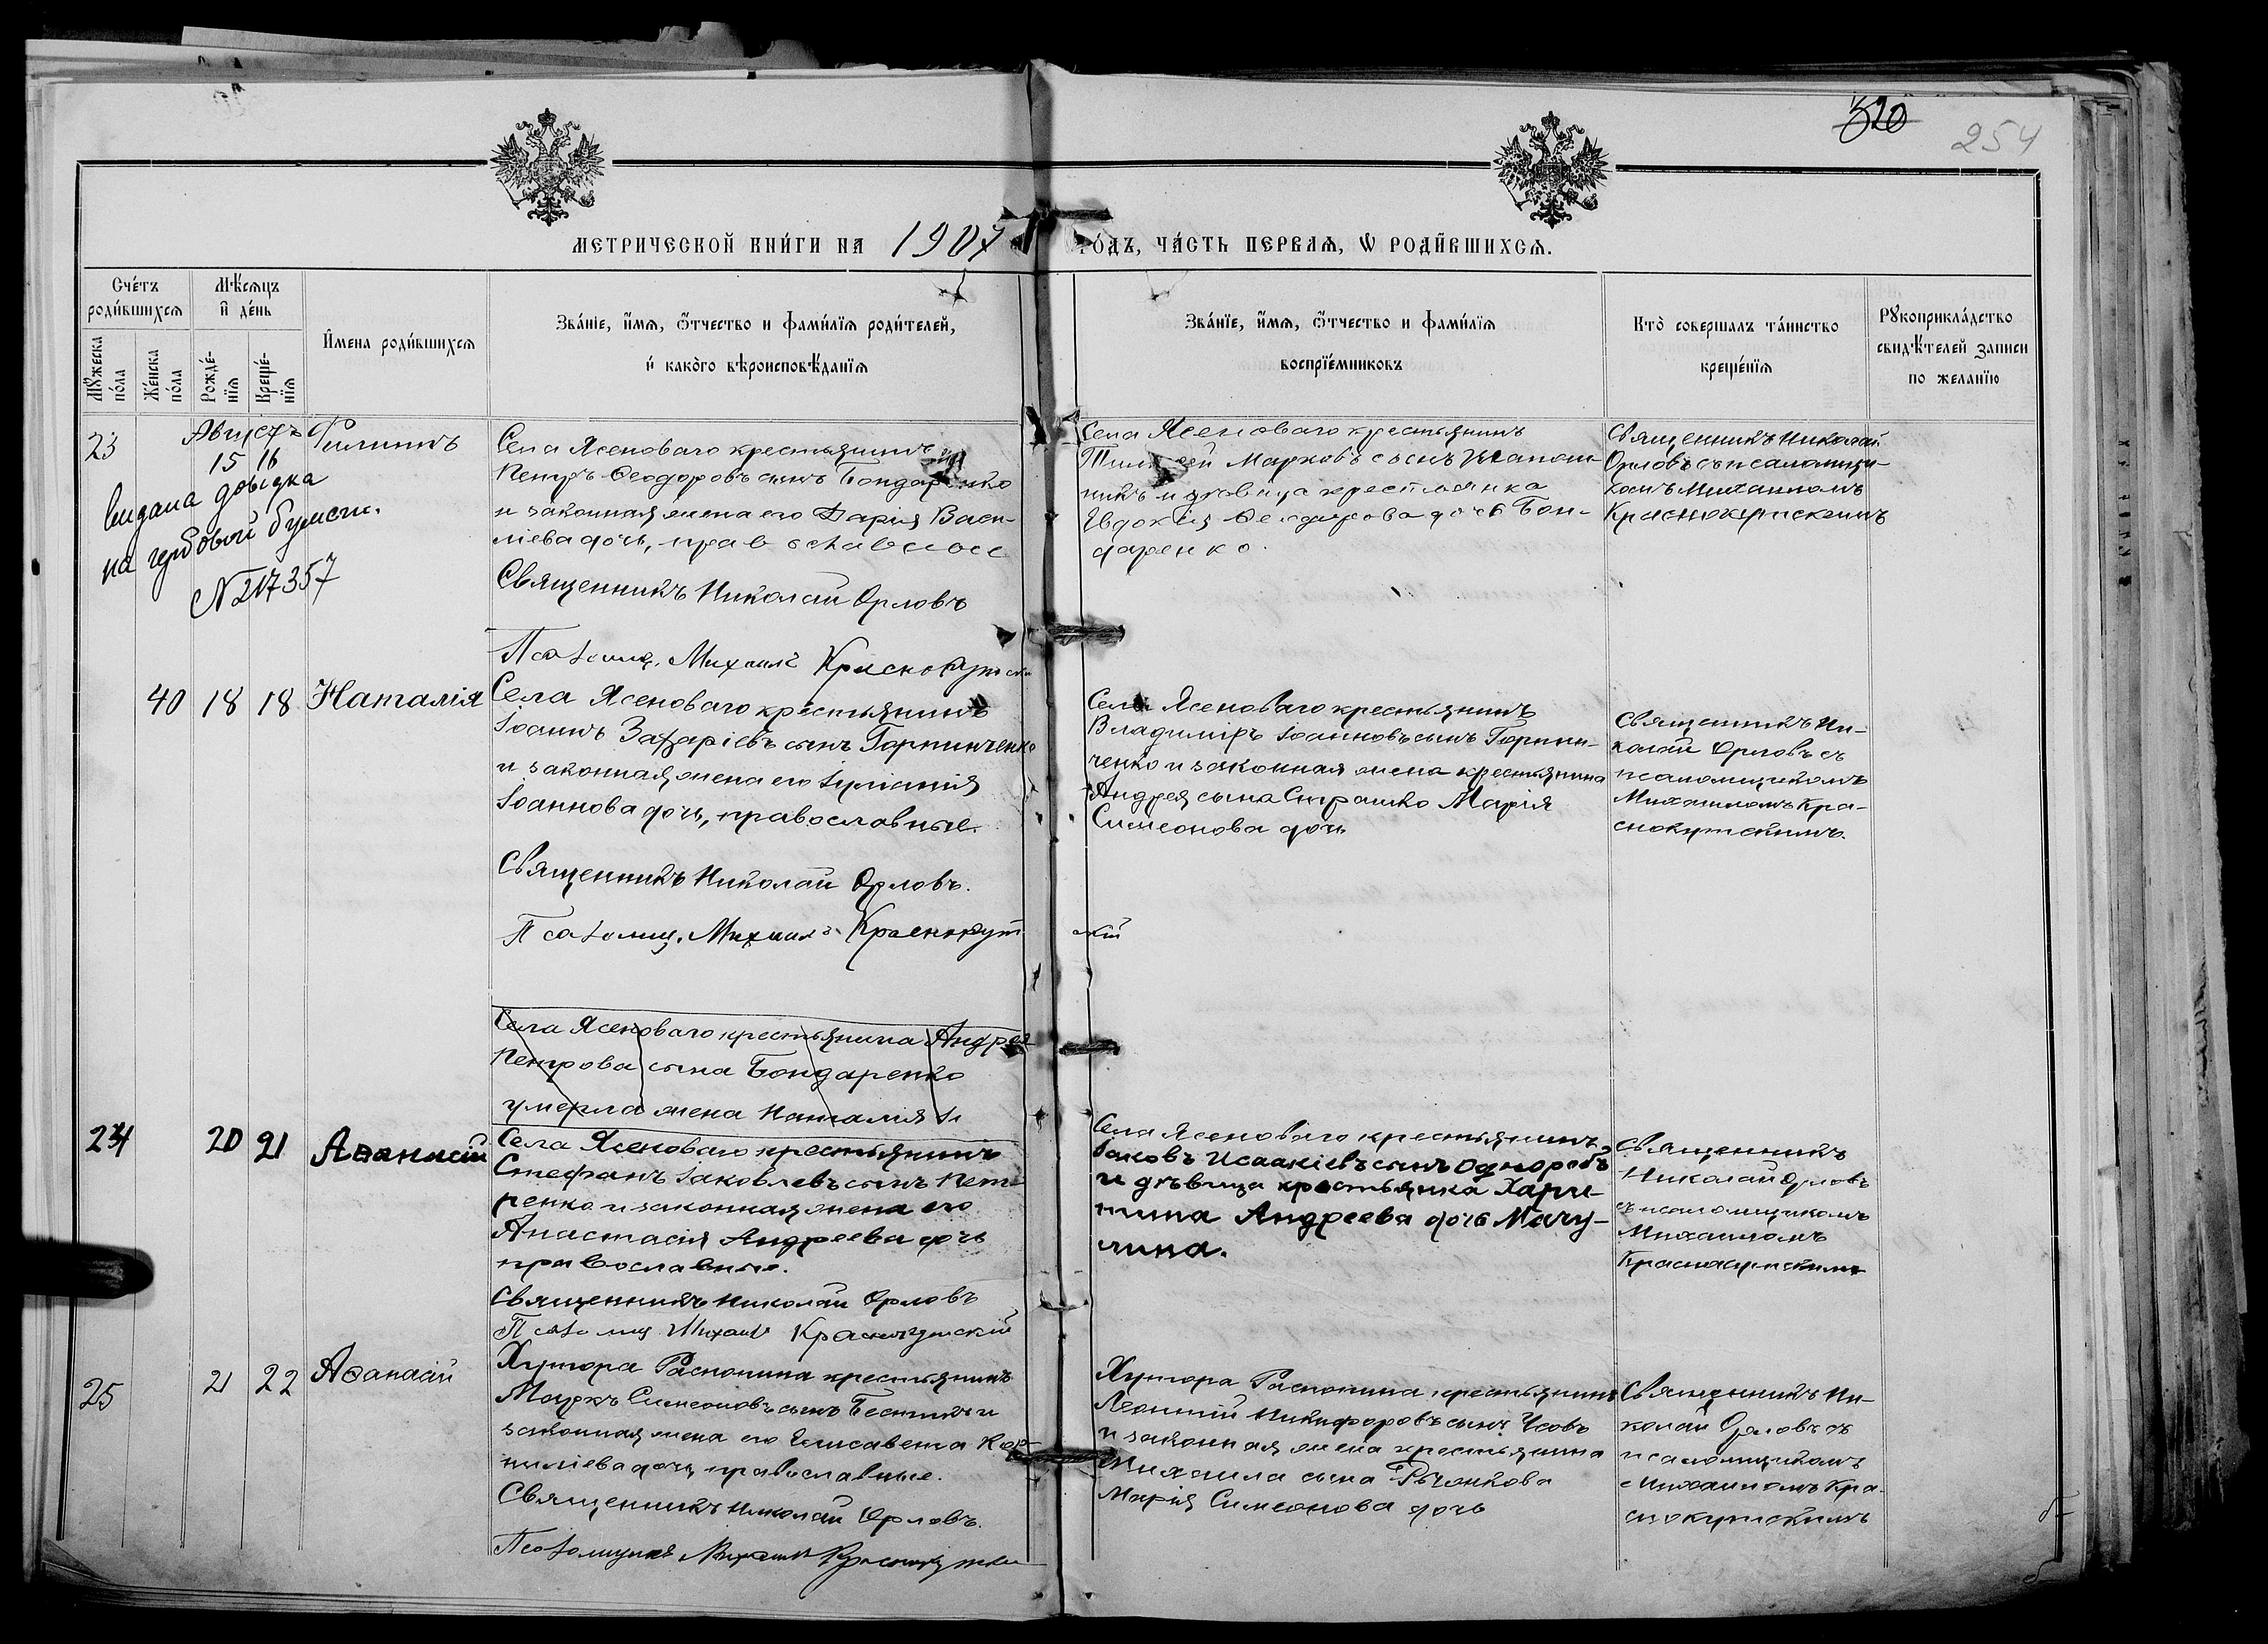 320
254
МЕТРИЧЕСКОЙ КНИ́ГИ НА 1907
ГО́ДЪ, ЧА́СТЬ ПЕРВАѦ, Ѡ РОДИ́ВШИХСѦ.
Сче́тъ
роди́вшихсѧ
Мѣ́сѧцъ
и҆ де́нь
Мꙋ́жеска
по́ла
Же́нска
по́ла
Рожде́-
нїѧ
Креще́-
нїѧ
И҆мена роди́вшихсѧ
Зва́нїе, и҆́мѧ, ѻ҆́тчество и фами́лїѧ роди́телей,
и҆ како́гѡ вѣроисповѣ́данїѧ
Зва́нїе, и҆́мѧ, ѻ҆́тчество и фами́лїѧ
воспрїе́мниковъ
Кто̀ совершалъ та́инство
креще́нїѧ
Рꙋкоприкла́дство
свидѣ́телей записи
по жела́нїю
23
Августъ
15 16
Филиппъ
видана довідка
на гербовой бумаги.
N 217357
Села Ясеноваго крестьянинъ
Петръ Ѳеодоровъ сынъ Бондаренко
и законная жена его Дарія Васи-
ліева дочь, православные
Священникъ Николай Орловъ
Псаломщ. Михаилъ Краснокутскій
Села Ясеноваго крестьянинъ
Тимоѳей Марковъ сынъ
никъ и крестьянка
Евдокія Ѳеодорова дочь Бон-
даренко.
Священникъ Николай
Орловъ съ псаломщи-
комъ Михаиломъ
Краснокутскимъ
40 18 18 Наталія
Села Ясеноваго крестьянинъ
Іоаннъ Захаріевъ сынъ Горпинченко
и законная жена его Іуліанія
Іоаннова дочь, православные.
Священникъ Николай Орловъ.
Псаломщ. Михаилъ Краснокутскій
Села Ясеноваго крестьянинъ
Владиміръ Іоанновъ сынъ Горпин-
ченко и законная жена крестьянина
Андрея сына Страшко Марія
Симеонова дочь
Священникъ Ни-
колай Орловъ съ
псаломщикомъ
Михаиломъ Кра-
снокутскимъ.
Села Ясеноваго крестьянина Андрея
Петрова сына Бондаренко
умерла жена Наталія
24 20 21 Аѳанасій
Села Ясеноваго крестьянинъ
Стефанъ Іаковлевъ сынъ Пет-
ренко и законная жена его
Анастасія Андреева дочь
православные.
Священникъ Николай Орловъ
Псаломщ. Михаилъ Краснокутскій
Села Ясеноваго крестьянинъ
Іаковъ Исаакіевъ сынъ Одноробъ
и дѣвица крестьянка Хари-
тина Андреева дочь Мачу-
лина.
Священникъ
Николай Орловъ
съ псаломщикомъ
Михаиломъ
Краснокутскимъ
25 21 22 Аѳанасій
Хутора Распопина крестьянинъ
Маркъ Симеоновъ сынъ и
законная жена его Елисавета Кор-
ниліева дочь, православные.
Священникъ Николай Орловъ.
Псаломщикъ Михаилъ Краснокутскій
Хутора Распопина крестьянинъ
Леонтій Никифоровъ сынъ Усовъ
и законная жена крестьянина
Михаила сына
Марія Симеонова дочь
Священникъ Ни-
колай Орловъ съ
псаломщикомъ
Михаиломъ Кра-
снокутскимъ